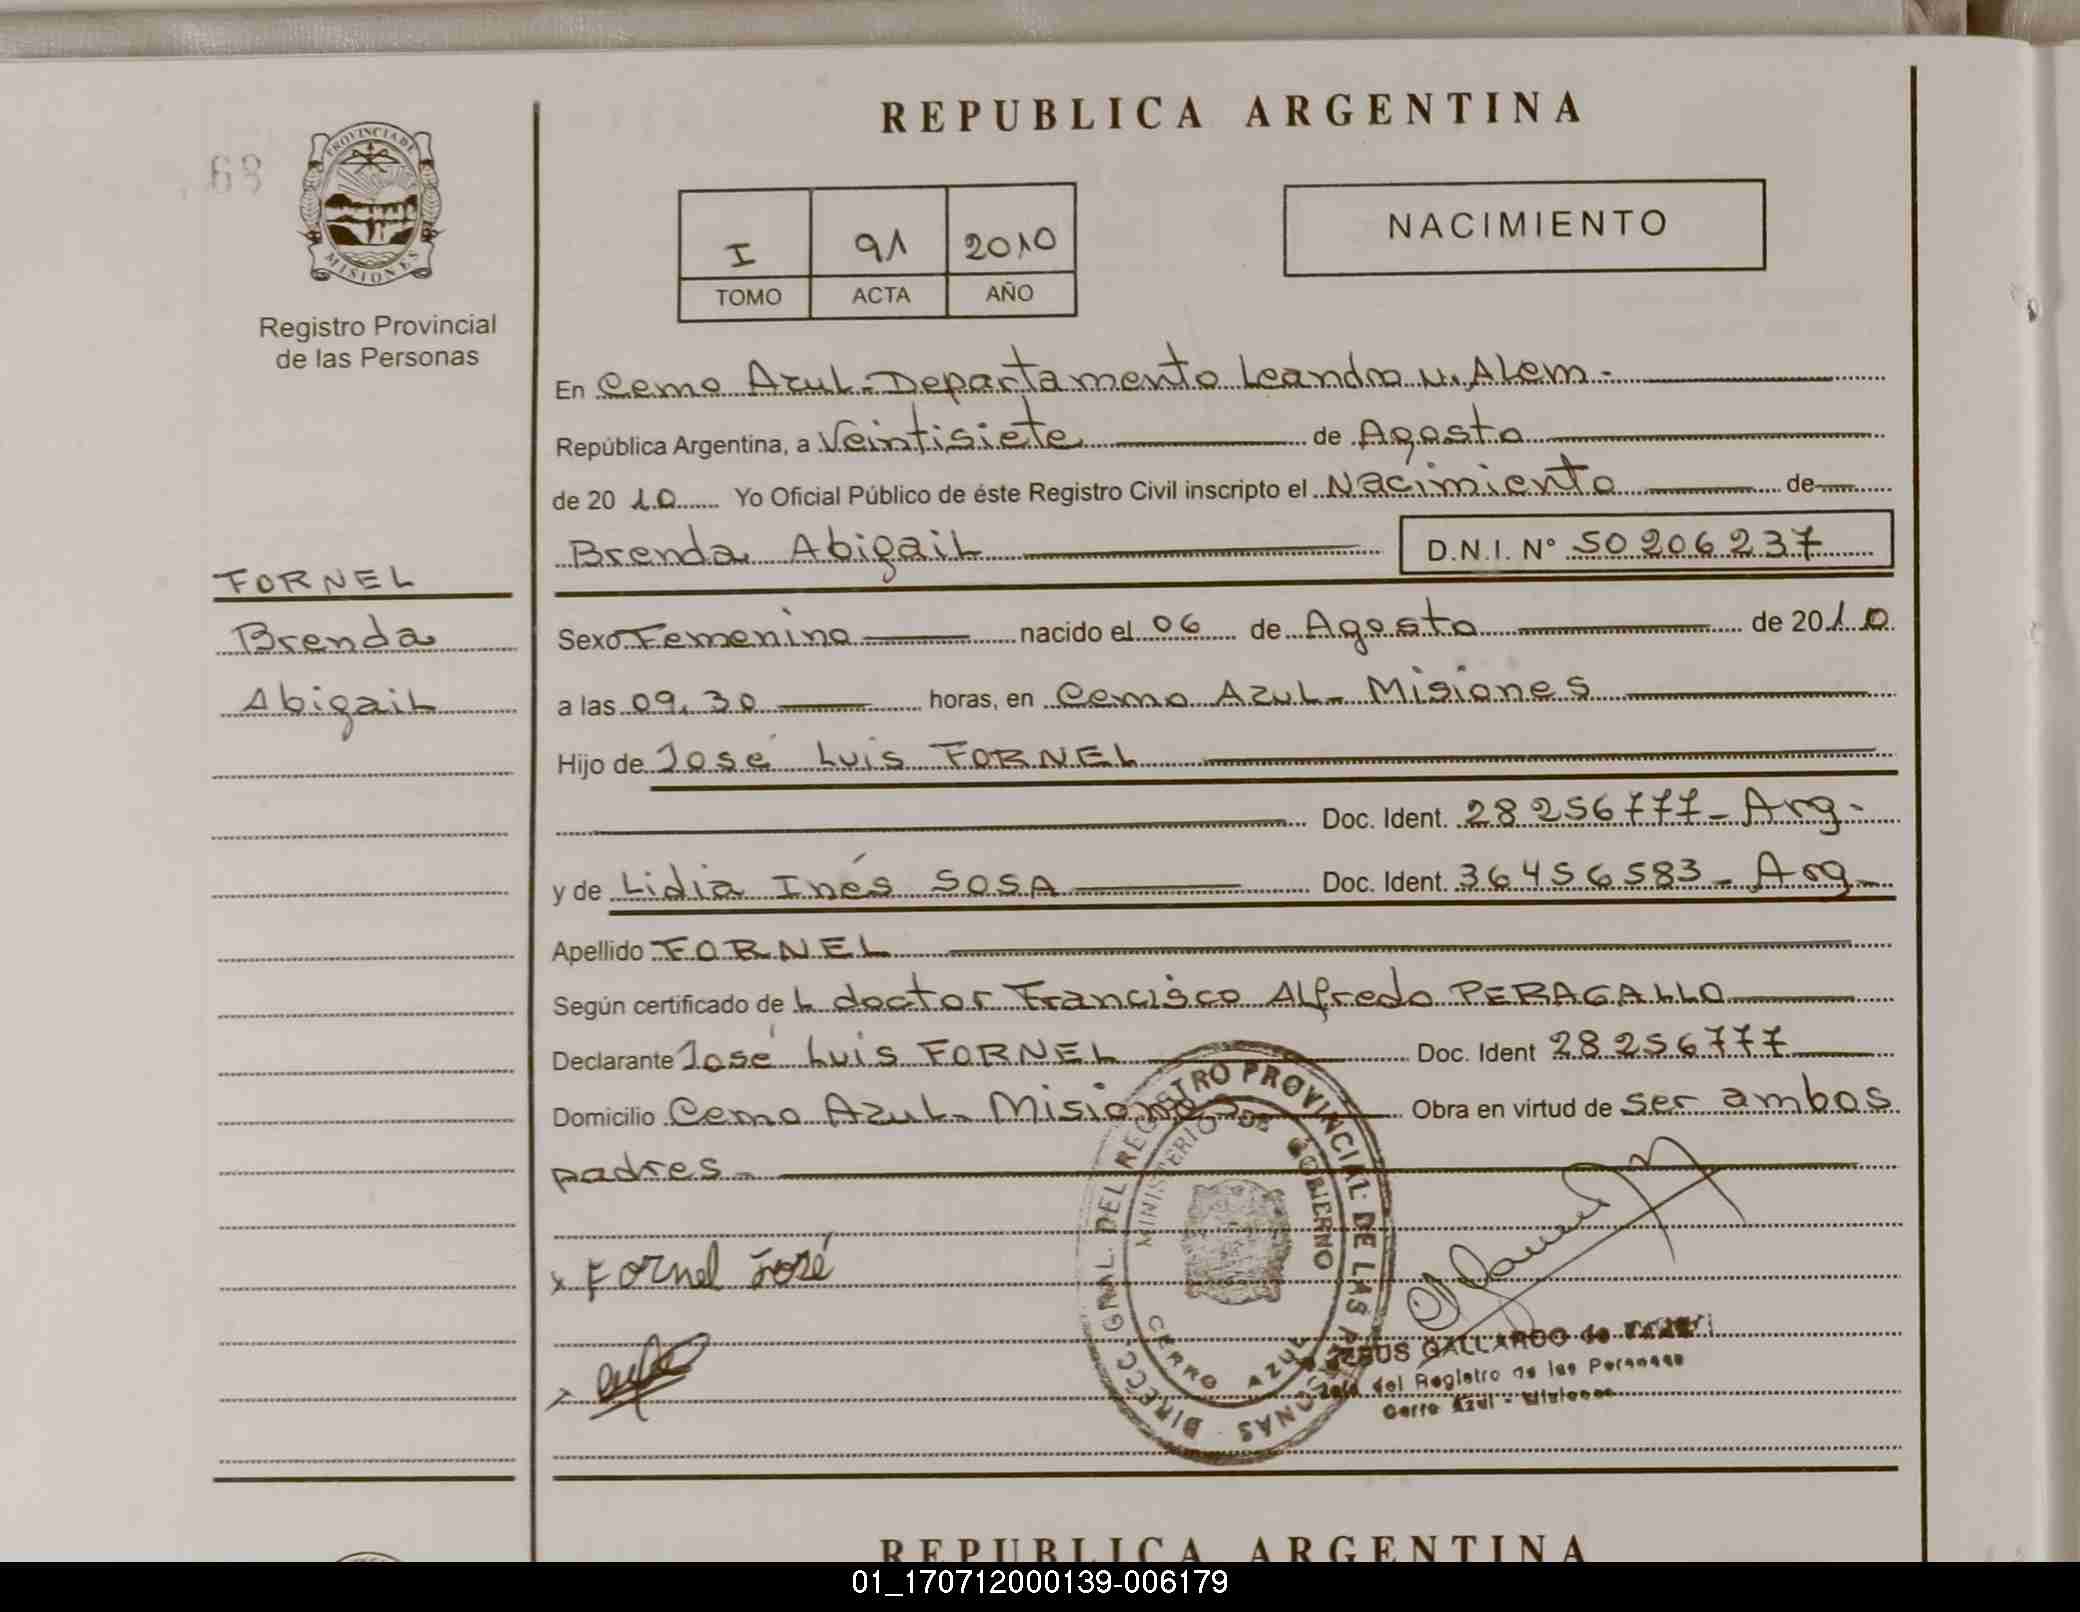 REPUBLICA ARGENTINA
68
PROVINCIA DE
MISIONES
Registro Provincial
de las Personas
I 91 2010
TOMO ACTA AÑO
NACIMIENTO
En Cerro Azul - Departamento Leandro N. Alem.-
República Argentina, a Veintisiete de Agosto
de 20 10 Yo Oficial Público de éste Registro Civil inscripto el Nacimiento de
Brenda Abigail D.N.I. N° 50 206 237
FORNEL
Brenda
Abigail
Sexo Femenino nacido el 06 de Agosto de 2010
a las 09,30 horas, en Cerro Azul - Misiones
Hijo de José Luis FORNEL
Doc. Ident. 28 256 777 - Arg.
y de Lidia Inés SOSA Doc. Ident. 36 456 583 - Arg -
Apellido FORNEL
Según certificado de L doctor Francisco Alfredo PERAGALLO
Declarante José Luis FORNEL Doc. Ident 28 256 777
Domicilio Cerro Azul - Misiones Obra en virtud de ser ambos
padres -
x Fornel José
DIRECC. GRAL. DEL REGISTRO PROVINCIAL DE LAS PERSONAS
MINISTERIO DE GOBIERNO
CERRO AZUL
GALLARDO de
del Registro de las Personas
Cerro Azul - Misiones
REPUBLICA ARGENTINA
01_170712000139-006179